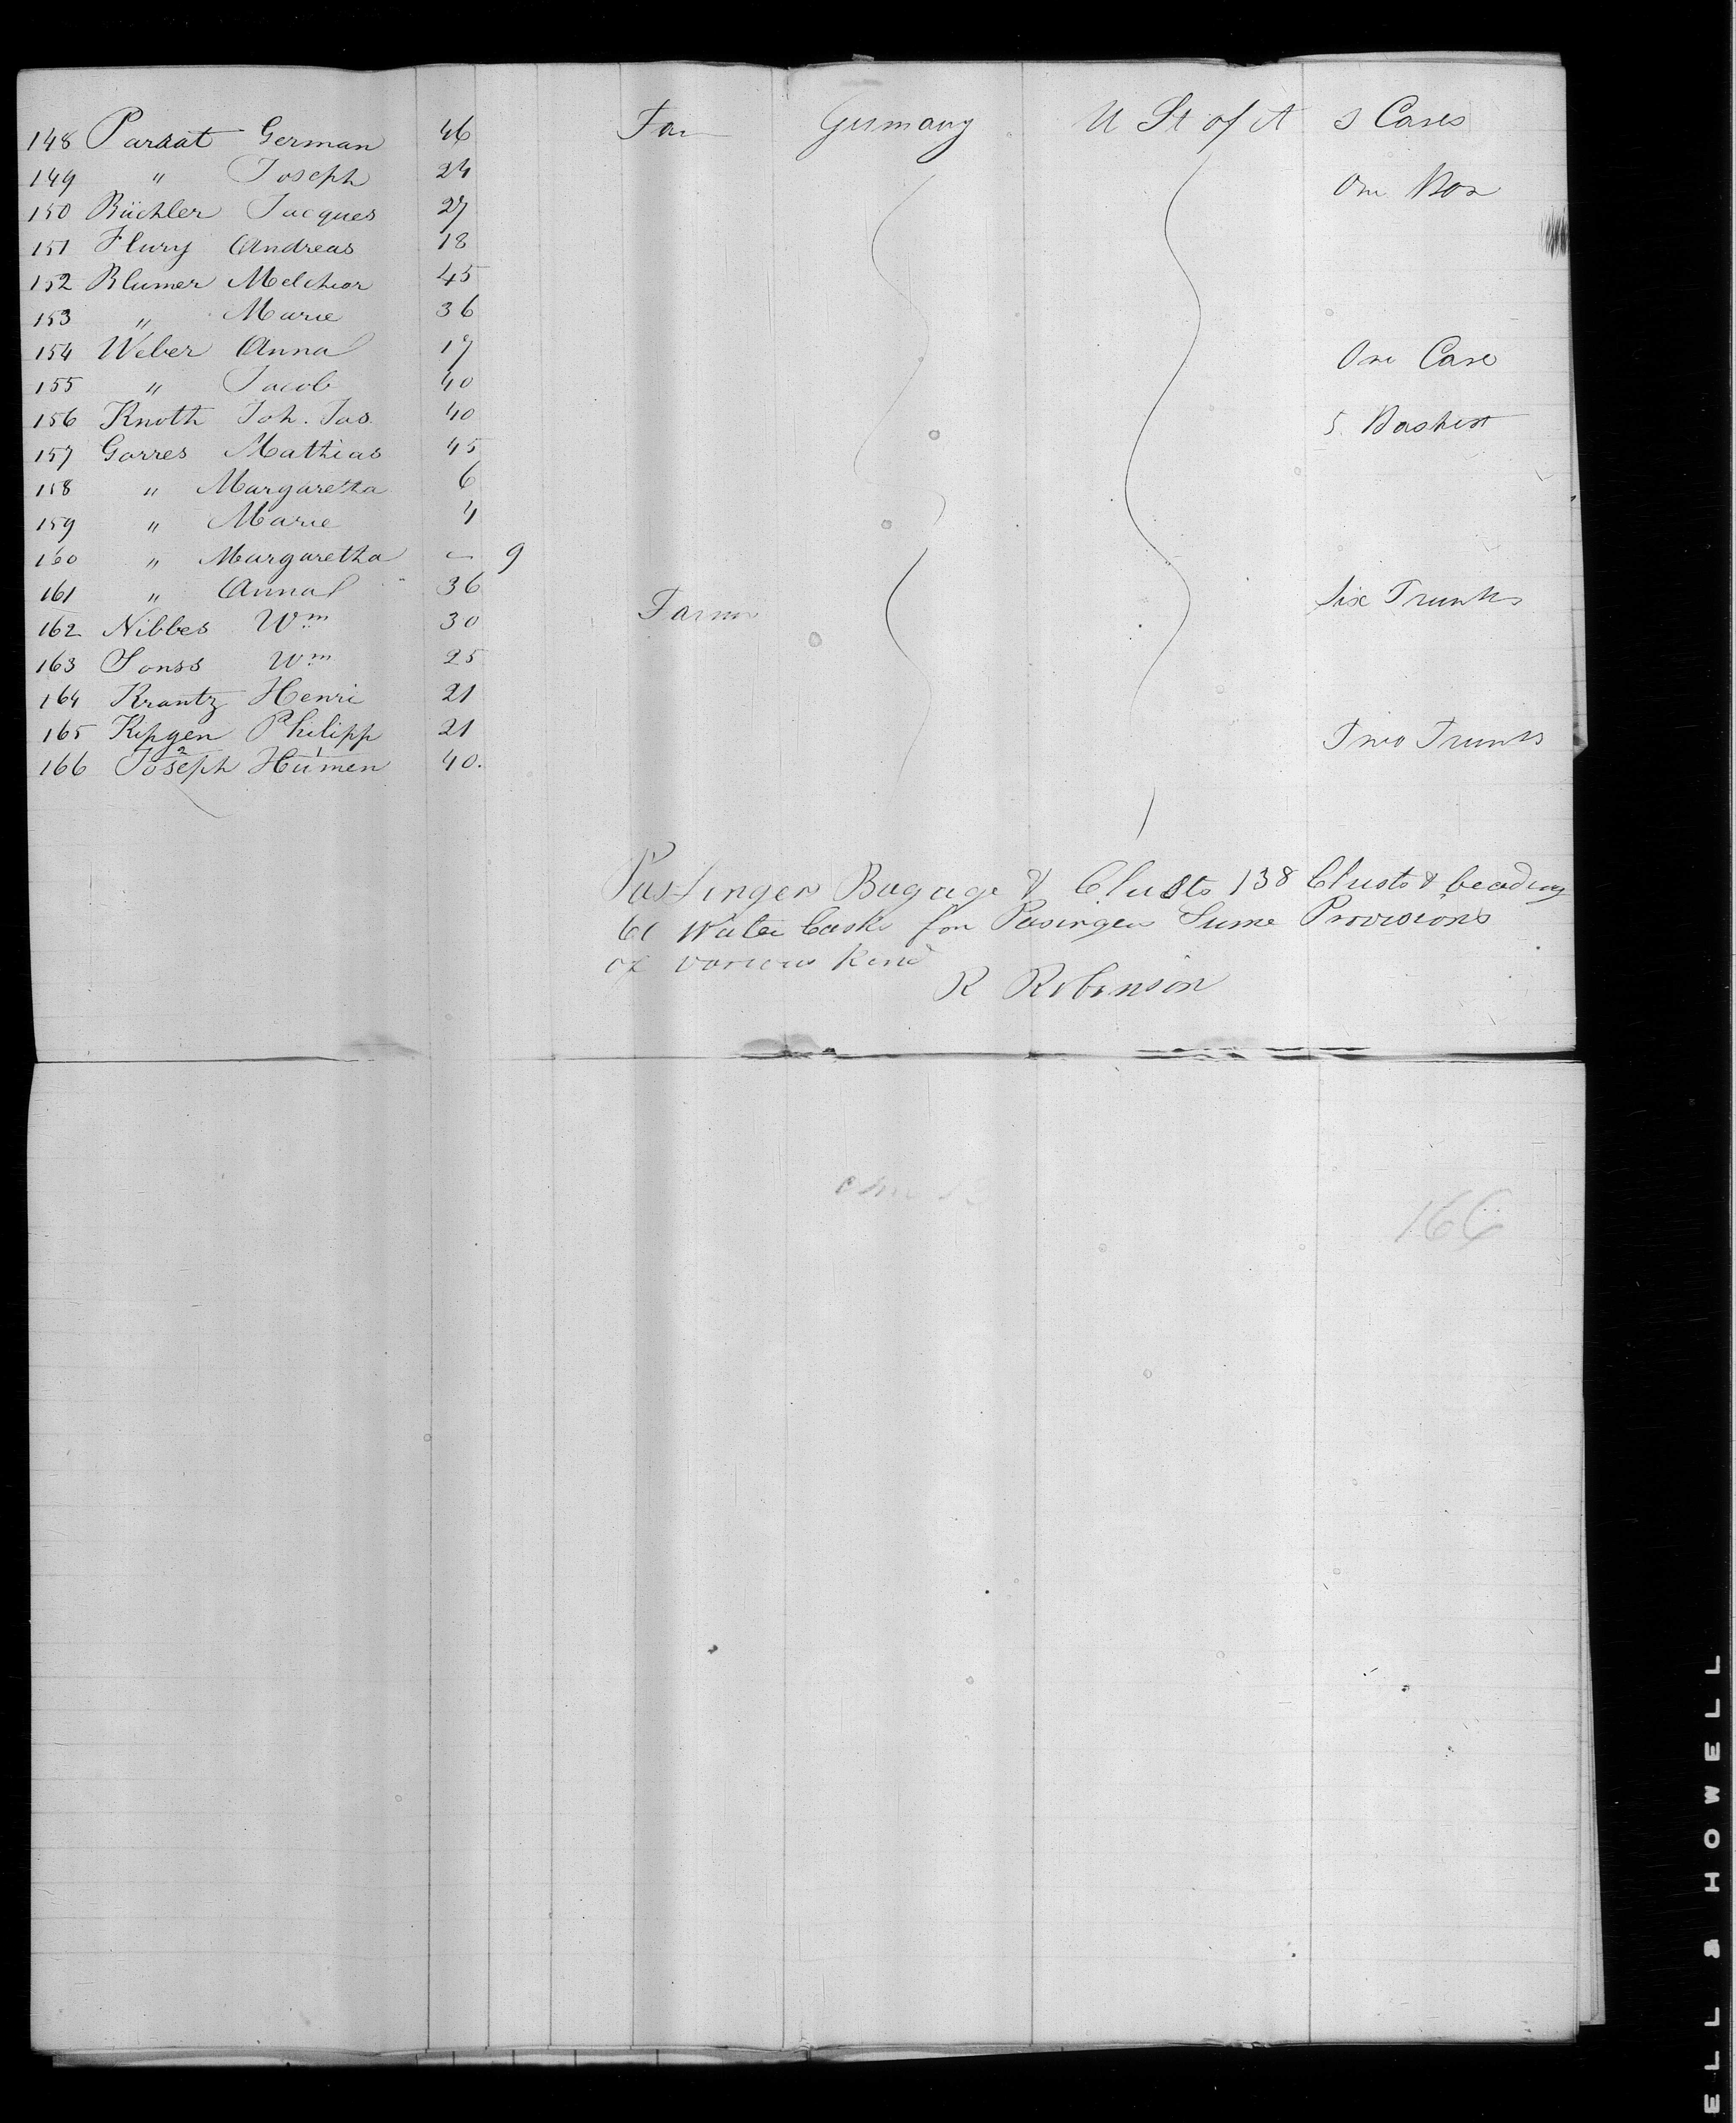 148 Parrat German 46 Far Germany U St of A 5 Cases
149 " Joseph 24 One Box
150 Büchler Jacques 27
151 Flury Andreas 18
152 Blumer Melchior 45
153 " Marie 36
154 Weber Anna 17 One Case
155 " Jacob 40
156 Knoth Joh. Jas. 40 5. Basket
157 Gorres Mathias 45
158 " Margaretha 6
159 " Marie 4
160 " Margaretha - 9
161 " Anna 36 Six Trunks
162 Nibbes Wm 30 Farmer
163 Sonss Wm 25
164 Krantz Henri 21
165 Kipgen Philipp 21 Two Trunks
166 Joseph Humen 40.
2 1
Passingers Bagage & Chests 138 Chests & beading
60 Water Casks for Pasinger Sume Provisions
of various Kind
R Robinson
166
ELL & HOWELL